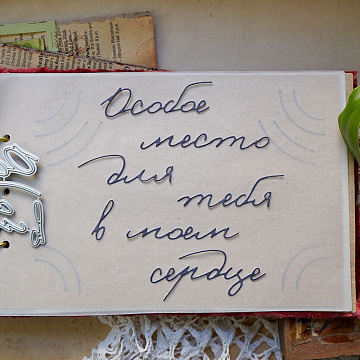 Особое
место
для
тебя
в моем
сердце